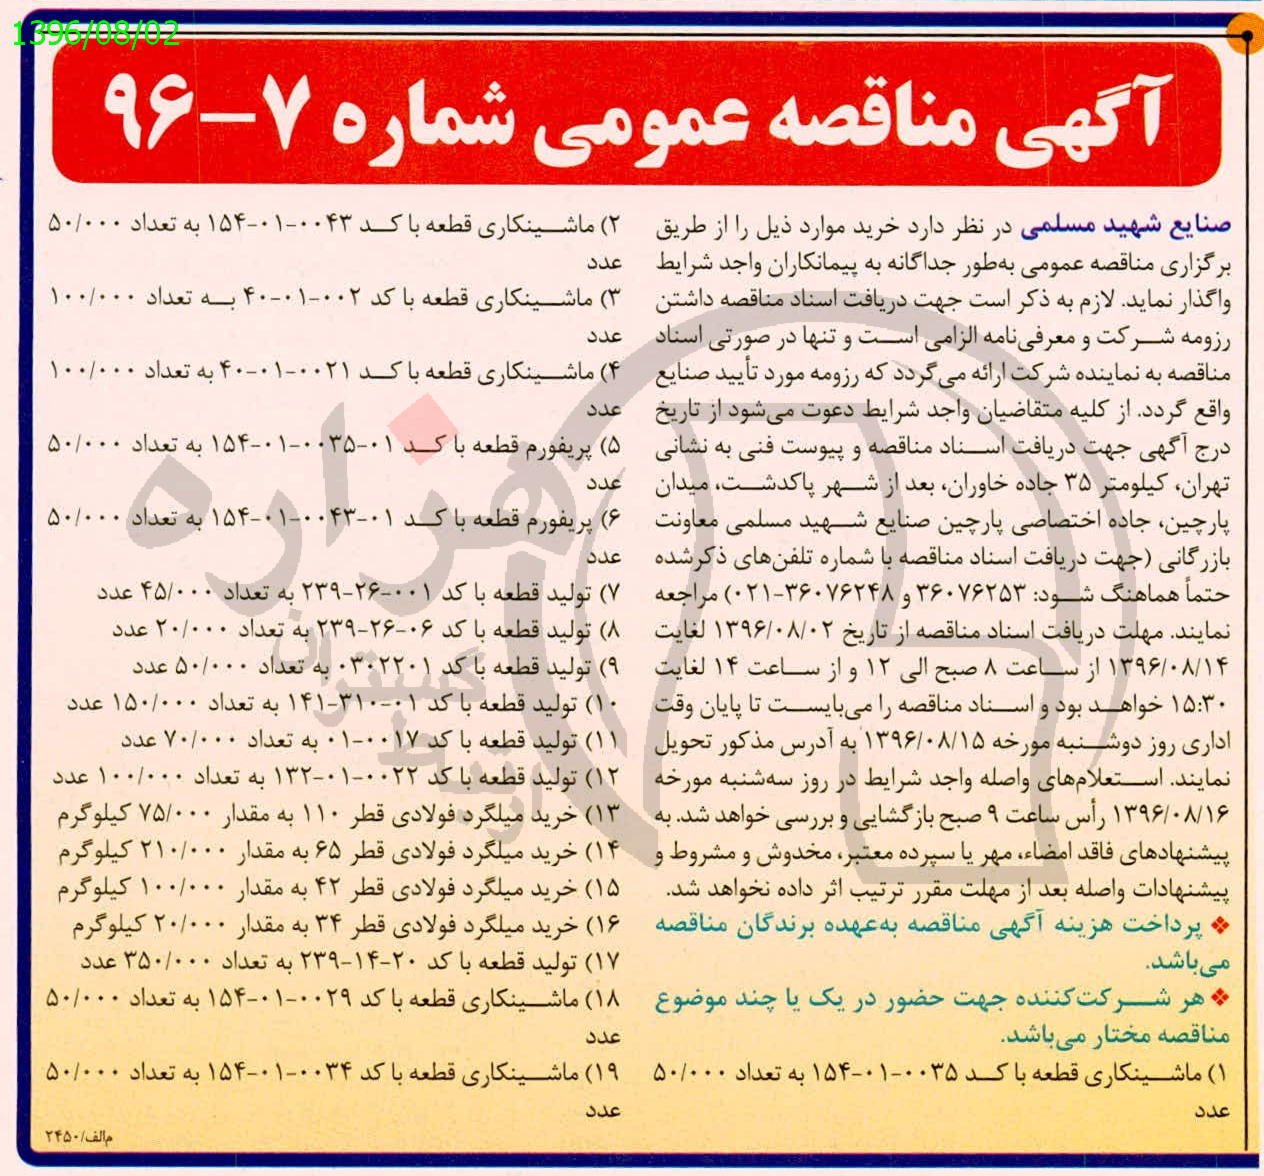 1396/08/02
آگهی مناقصه عمومی شماره ۷-۹۶
صنایع شهید مسلمی در نظر دارد خرید موارد ذیل را از طریق
برگزاری مناقصه عمومی به‌طور جداگانه به پیمانکاران واجد شرایط
واگذار نماید. لازم به ذکر است جهت دریافت اسناد مناقصه داشتن
رزومه شرکت و معرفی‌نامه الزامی است و تنها در صورتی اسناد
مناقصه به نماینده شرکت ارائه می‌گردد که رزومه مورد تأیید صنایع
واقع گردد. از کلیه متقاضیان واجد شرایط دعوت می‌شود از تاریخ
درج آگهی جهت دریافت اسناد مناقصه و پیوست فنی به نشانی
تهران، کیلومتر ۳۵ جاده خاوران، بعد از شهر پاکدشت، میدان
پارچین، جاده اختصاصی پارچین صنایع شهید مسلمی معاونت
بازرگانی (جهت دریافت اسناد مناقصه با شماره تلفن‌های ذکرشده
حتماً هماهنگ شود: ۳۶۰۷۶۲۵۳ و ۳۶۰۷۶۲۴۸-۰۲۱) مراجعه
نمایند. مهلت دریافت اسناد مناقصه از تاریخ ۱۳۹۶/۰۸/۰۲ لغایت
۱۳۹۶/۰۸/۱۴ از ساعت ۸ صبح الی ۱۲ و از ساعت ۱۴ لغایت
۱۵:۳۰ خواهد بود و اسناد مناقصه را می‌بایست تا پایان وقت
اداری روز دوشنبه مورخه ۱۳۹۶/۰۸/۱۵ به آدرس مذکور تحویل
نمایند. استعلام‌های واصله واجد شرایط در روز سه‌شنبه مورخه
۱۳۹۶/۰۸/۱۶ رأس ساعت ۹ صبح بازگشایی و بررسی خواهد شد. به
پیشنهادهای فاقد امضاء، مهر یا سپرده معتبر، مخدوش و مشروط و
پیشنهادات واصله بعد از مهلت مقرر ترتیب اثر داده نخواهد شد.
❖ پرداخت هزینه آگهی مناقصه به‌عهده برندگان مناقصه
می‌باشد.
❖ هر شرکت‌کننده جهت حضور در یک یا چند موضوع
مناقصه مختار می‌باشد.
۱) ماشینکاری قطعه با کد ۰۰۳۵-۰۱-۱۵۴ به تعداد ۵۰/۰۰۰
عدد
۲) ماشینکاری قطعه با کد ۰۰۴۳-۰۱-۱۵۴ به تعداد ۵۰/۰۰۰
عدد
۳) ماشینکاری قطعه با کد ۰۰۲-۰۱-۴۰ به تعداد ۱۰۰/۰۰۰
عدد
۴) ماشینکاری قطعه با کد ۰۰۲۱-۰۱-۴۰ به تعداد ۱۰۰/۰۰۰
عدد
۵) پریفورم قطعه با کد ۰۱-۰۰۳۵-۰۱-۱۵۴ به تعداد ۵۰/۰۰۰
عدد
۶) پریفورم قطعه با کد ۰۱-۰۰۴۳-۰۱-۱۵۴ به تعداد ۵۰/۰۰۰
عدد
۷) تولید قطعه با کد ۰۰۱-۲۶-۲۳۹ به تعداد ۴۵/۰۰۰ عدد
۸) تولید قطعه با کد ۰۶-۲۶-۲۳۹ به تعداد ۲۰/۰۰۰ عدد
۹) تولید قطعه با کد ۰۳۰۲۲۰۱ به تعداد ۵۰/۰۰۰ عدد
۱۰) تولید قطعه با کد ۰۱-۳۱۰-۱۴۱ به تعداد ۱۵۰/۰۰۰ عدد
۱۱) تولید قطعه با کد ۰۰۱۷-۰۱ به تعداد ۷۰/۰۰۰ عدد
۱۲) تولید قطعه با کد ۰۰۲۲-۰۱-۱۳۲ به تعداد ۱۰۰/۰۰۰ عدد
۱۳) خرید میلگرد فولادی قطر ۱۱۰ به مقدار ۷۵/۰۰۰ کیلوگرم
۱۴) خرید میلگرد فولادی قطر ۶۵ به مقدار ۲۱۰/۰۰۰ کیلوگرم
۱۵) خرید میلگرد فولادی قطر ۴۲ به مقدار ۱۰۰/۰۰۰ کیلوگرم
۱۶) خرید میلگرد فولادی قطر ۳۴ به مقدار ۲۰/۰۰۰ کیلوگرم
۱۷) تولید قطعه با کد ۲۰-۱۴-۲۳۹ به تعداد ۳۵۰/۰۰۰ عدد
۱۸) ماشینکاری قطعه با کد ۰۰۲۹-۰۱-۱۵۴ به تعداد ۵۰/۰۰۰
عدد
۱۹) ماشینکاری قطعه با کد ۰۰۳۴-۰۱-۱۵۴ به تعداد ۵۰/۰۰۰
عدد
م‌الف/۲۴۵۰
هزاره
گستران
ارتباط